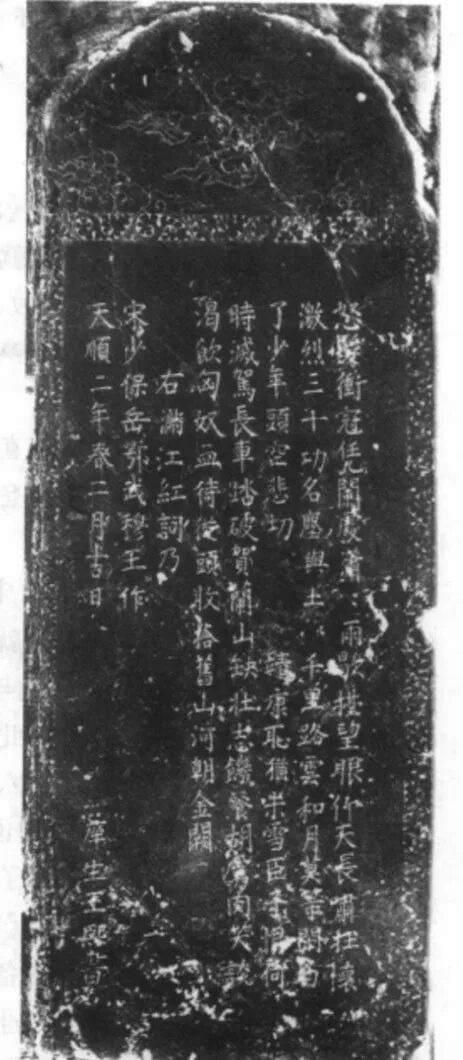 怒髮衝冠凭闌處瀟〻雨歇擡望眼仰天長嘯壯懷
激烈三十功名塵與土千里路雲和月莫等閒白
了少年頭空悲切 靖康恥猶未雪臣子恨何
時滅駕長車踏破賀蘭山缺壯志饑餐胡虜肉笑談
渴飲匈奴血待從頭收拾舊山河朝金闕
右滿江紅詞乃
宋少保岳鄂武穆王作
天順二年春二月吉日 庠生王熙書